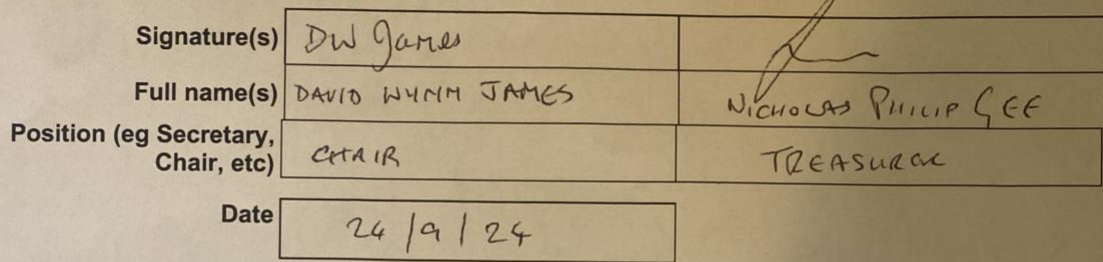 Signature(s) DW James
Full name(s) DAVID WYNN JAMES NICHOLAS PHILIP GEE
Position (eg Secretary, Chair, etc) CHAIR TREASURER
Date 24/9/24